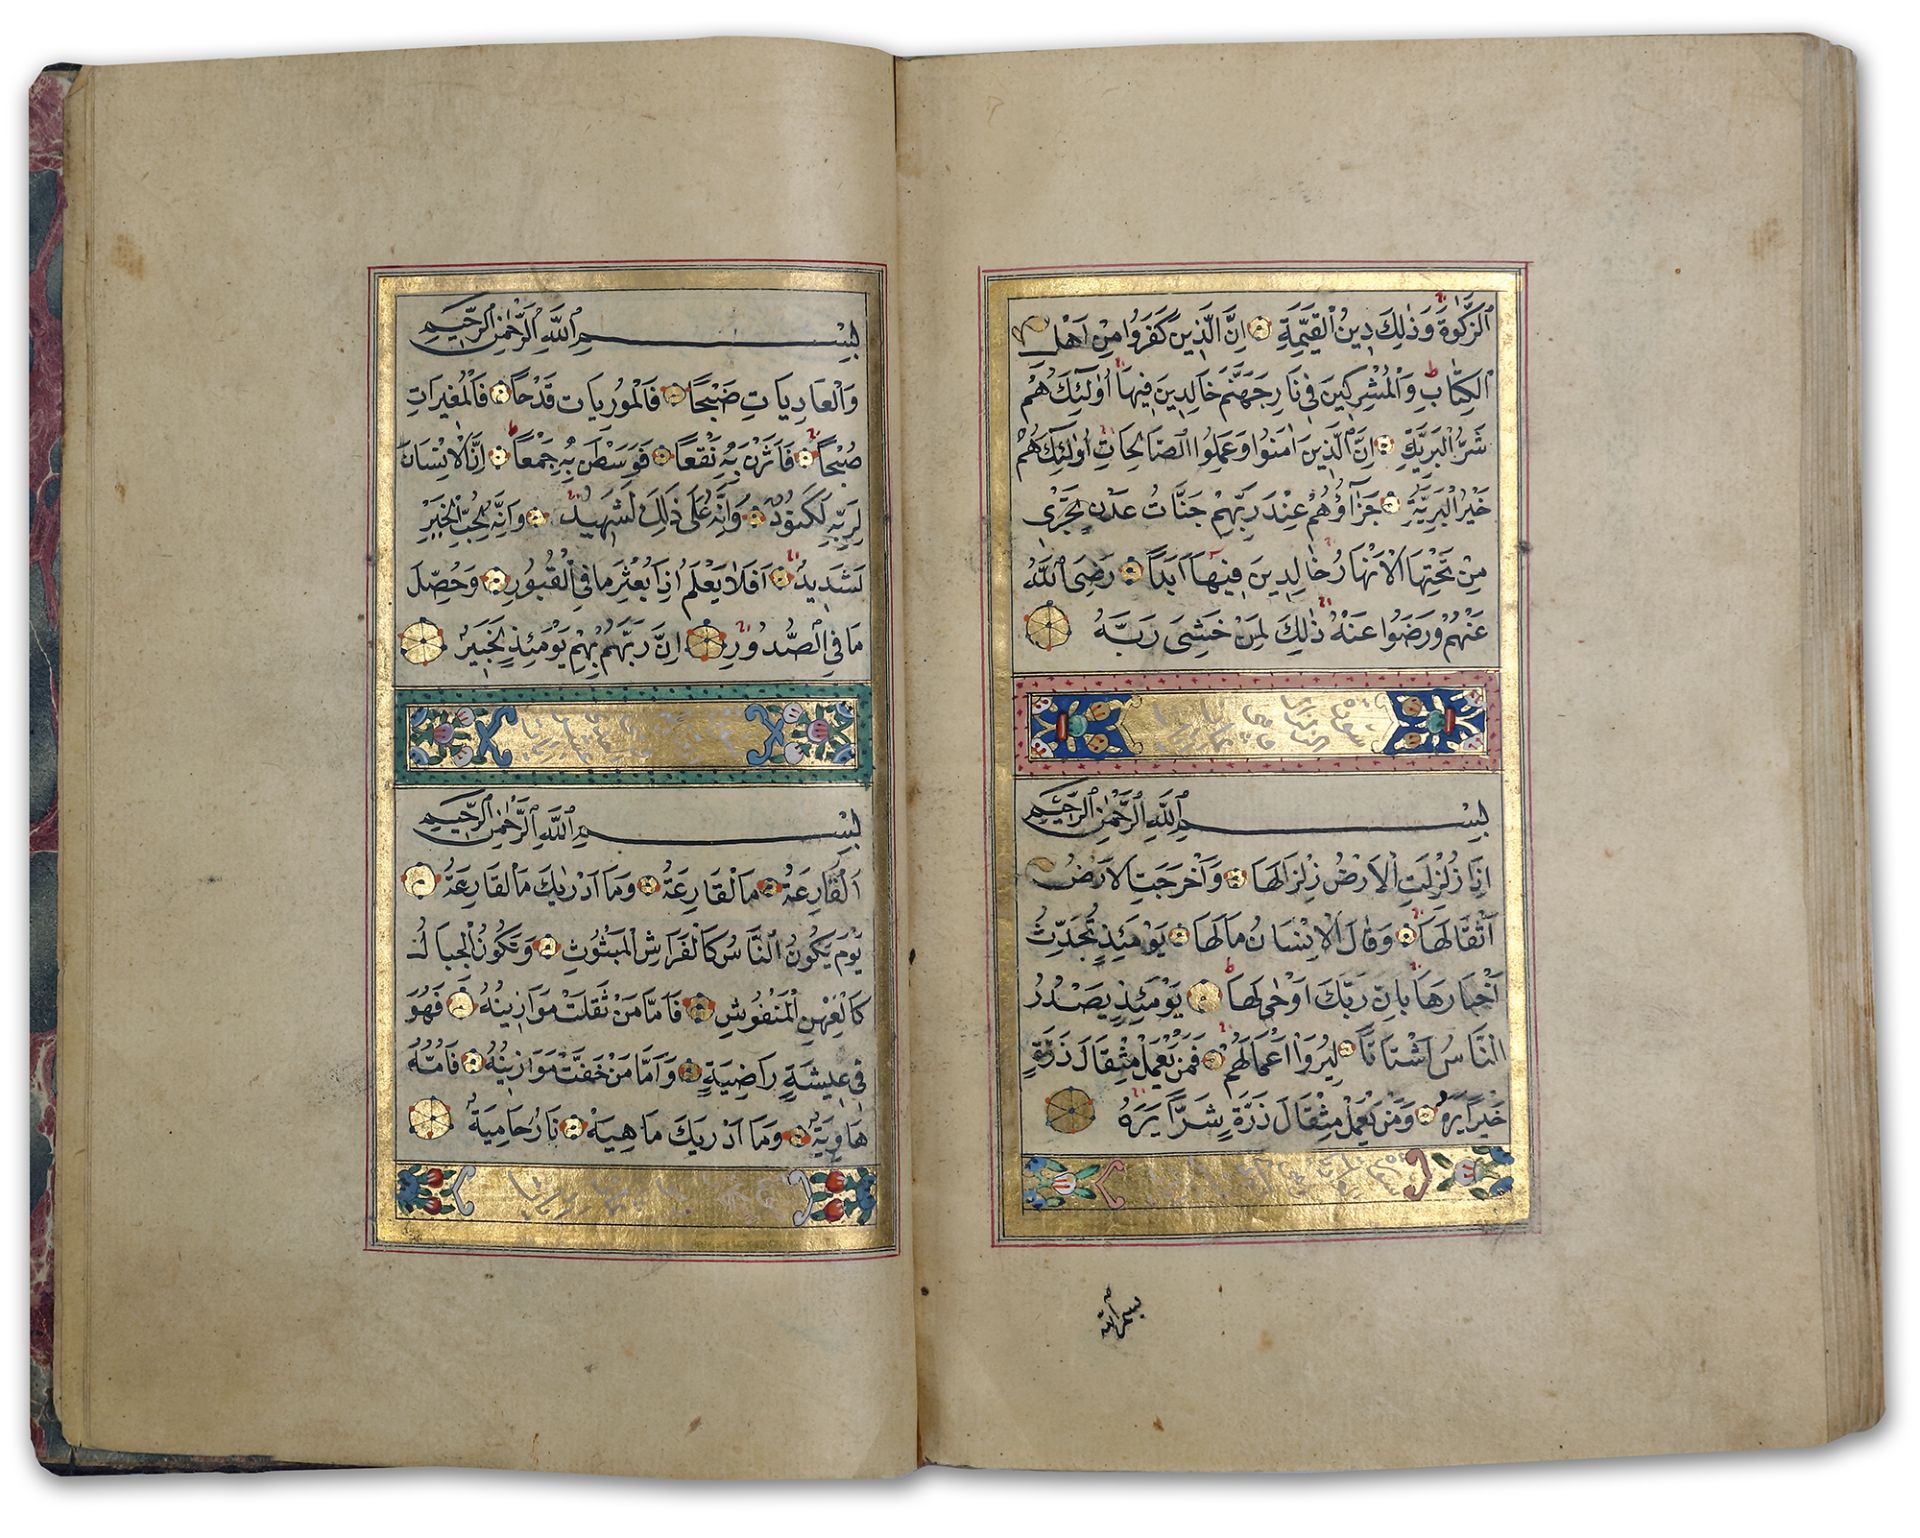 اَلزَّكٰوةَ وَذٰلِكَ دِينُ الْقَيِّمَةِ اِنَّ الَّذِينَ كَفَرُوا مِنْ اَهْلِ
الْكِتَابِ وَالْمُشْرِكِينَ فِى نَارِ جَهَنَّمَ خَالِدِينَ فِيهَا اُولٰئِكَ هُمْ
شَرُّ الْبَرِيَّةِ اِنَّ الَّذِينَ اٰمَنُوا وَعَمِلُوا الصَّالِحَاتِ اُولٰئِكَ هُمْ
خَيْرُ الْبَرِيَّةِ جَزَآؤُهُمْ عِنْدَ رَبِّهِمْ جَنَّاتُ عَدْنٍ تَجْرِى
مِنْ تَحْتِهَا الْاَنْهَارُ خَالِدِينَ فِيهَا اَبَدًا رَضِىَ اللّٰهُ
عَنْهُمْ وَرَضُوا عَنْهُ ذٰلِكَ لِمَنْ خَشِىَ رَبَّهُ
سورة الزلزال
بِسْمِ اللّٰهِ الرَّحْمٰنِ الرَّحِيمِ
اِذَا زُلْزِلَتِ الْاَرْضُ زِلْزَالَهَا وَاَخْرَجَتِ الْاَرْضُ
اَثْقَالَهَا وَقَالَ الْاِنْسَانُ مَالَهَا يَوْمَئِذٍ تُحَدِّثُ
اَخْبَارَهَا بِاَنَّ رَبَّكَ اَوْحٰى لَهَا يَوْمَئِذٍ يَصْدُرُ
النَّاسُ اَشْتَاتًا لِيُرَوْا اَعْمَالَهُمْ فَمَنْ يَعْمَلْ مِثْقَالَ ذَرَّةٍ
خَيْرًا يَرَهُ وَمَنْ يَعْمَلْ مِثْقَالَ ذَرَّةٍ شَرًّا يَرَهُ
سورة
بسم الله
بِسْمِ اللّٰهِ الرَّحْمٰنِ الرَّحِيمِ
وَالْعَادِيَاتِ ضَبْحًا فَالْمُورِيَاتِ قَدْحًا فَالْمُغِيرَاتِ
صُبْحًا فَاَثَرْنَ بِهِ نَقْعًا فَوَسَطْنَ بِهِ جَمْعًا اِنَّ الْاِنْسَانَ
لِرَبِّهِ لَكَنُودٌ وَاِنَّهُ عَلَى ذٰلِكَ لَشَهِيدٌ وَاِنَّهُ لِحُبِّ الْخَيْرِ
لَشَدِيدٌ اَفَلَا يَعْلَمُ اِذَا بُعْثِرَ مَا فِى الْقُبُورِ وَحُصِّلَ
مَا فِى الصُّدُورِ اِنَّ رَبَّهُمْ بِهِمْ يَوْمَئِذٍ لَخَبِيرٌ
بِسْمِ اللّٰهِ الرَّحْمٰنِ الرَّحِيمِ
اَلْقَارِعَةُ مَا الْقَارِعَةُ وَمَا اَدْرٰيكَ مَا الْقَارِعَةُ
يَوْمَ يَكُونُ النَّاسُ كَالْفَرَاشِ الْمَبْثُوثِ وَتَكُونُ الْجِبَالُ
كَالْعِهْنِ الْمَنْفُوشِ فَاَمَّا مَنْ ثَقُلَتْ مَوَازِينُهُ فَهُوَ
فِى عِيشَةٍ رَاضِيَةٍ وَاَمَّا مَنْ خَفَّتْ مَوَازِينُهُ فَاُمُّهُ
هَاوِيَةٌ وَمَا اَدْرٰيكَ مَاهِيَهْ نَارٌ حَامِيَةٌ